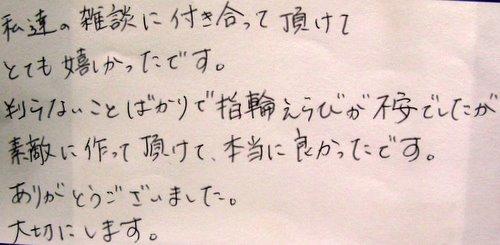 私達の雑談に付き合って頂けて
とても嬉しかったです。
判らないことばかりで指輪えらびが不安でしたが
素敵に作って頂けて、本当に良かったです。
ありがとうございました。
大切にします。